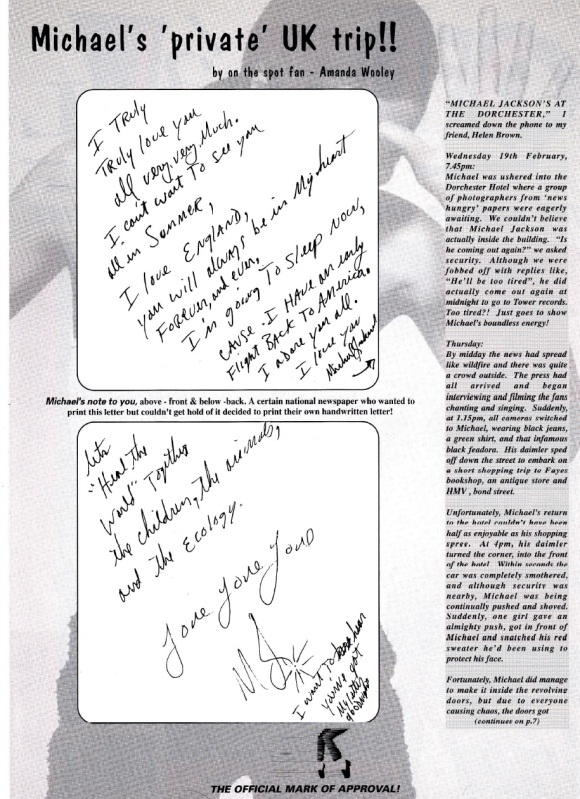 Michael's 'private' UK trip!!
by on the spot fan - Amanda Wooley
I TRuly
TRuly love you
all very, very Much.
I can't wait To see you
all in SuMMeR,
I love ENglAND,
you will always be in My heart
FoReveR, and ever,
I'm going To Sleep Now,
CAuse I HAve an early
Flight BAck To AmericA.
I adore you all.
I love you
Michael Jackson
Michael's note to you, above - front & below -back. A certain national newspaper who wanted to
print this letter but couldn't get hold of it decided to print their own handwritten letter!
lets
"Heal The
World" Together
the children, the animals,
and the Ecology.
Love you
I want to hear
you've got
My letter
"MICHAEL JACKSON'S AT
THE DORCHESTER," I
screamed down the phone to my
friend, Helen Brown.
Wednesday 19th February,
7.45pm:
Michael was ushered into the
Dorchester Hotel where a group
of photographers from 'news
hungry' papers were eagerly
awaiting. We couldn't believe
that Michael Jackson was
actually inside the building. "Is
he coming out again?" we asked
security. Although we were
fobbed off with replies like,
"He'll be too tired", he did
actually come out again at
midnight to go to Tower records.
Too tired?! Just goes to show
Michael's boundless energy!
Thursday:
By midday the news had spread
like wildfire and there was quite
a crowd outside. The press had
all arrived and began
interviewing and filming the fans
chanting and singing. Suddenly,
at 1.15pm, all cameras switched
to Michael, wearing black jeans,
a green shirt, and that infamous
black feadora. His daimler sped
off down the street to embark on
a short shopping trip to Fayes
bookshop, an antique store and
HMV , bond street.
Unfortunately, Michael's return
to the hotel couldn't have been
half as enjoyable as his shopping
spree. At 4pm, his daimler
turned the corner, into the front
of the hotel. Within seconds the
car was completely smothered,
and although security was
nearby, Michael was being
continually pushed and shoved.
Suddenly, one girl gave an
almighty push, got in front of
Michael and snatched his red
sweater he'd been using to
protect his face.
Fortunately, Michael did manage
to make it inside the revolving
doors, but due to everyone
causing chaos, the doors got
(continues on p.7)
THE OFFICIAL MARK OF APPROVAL!